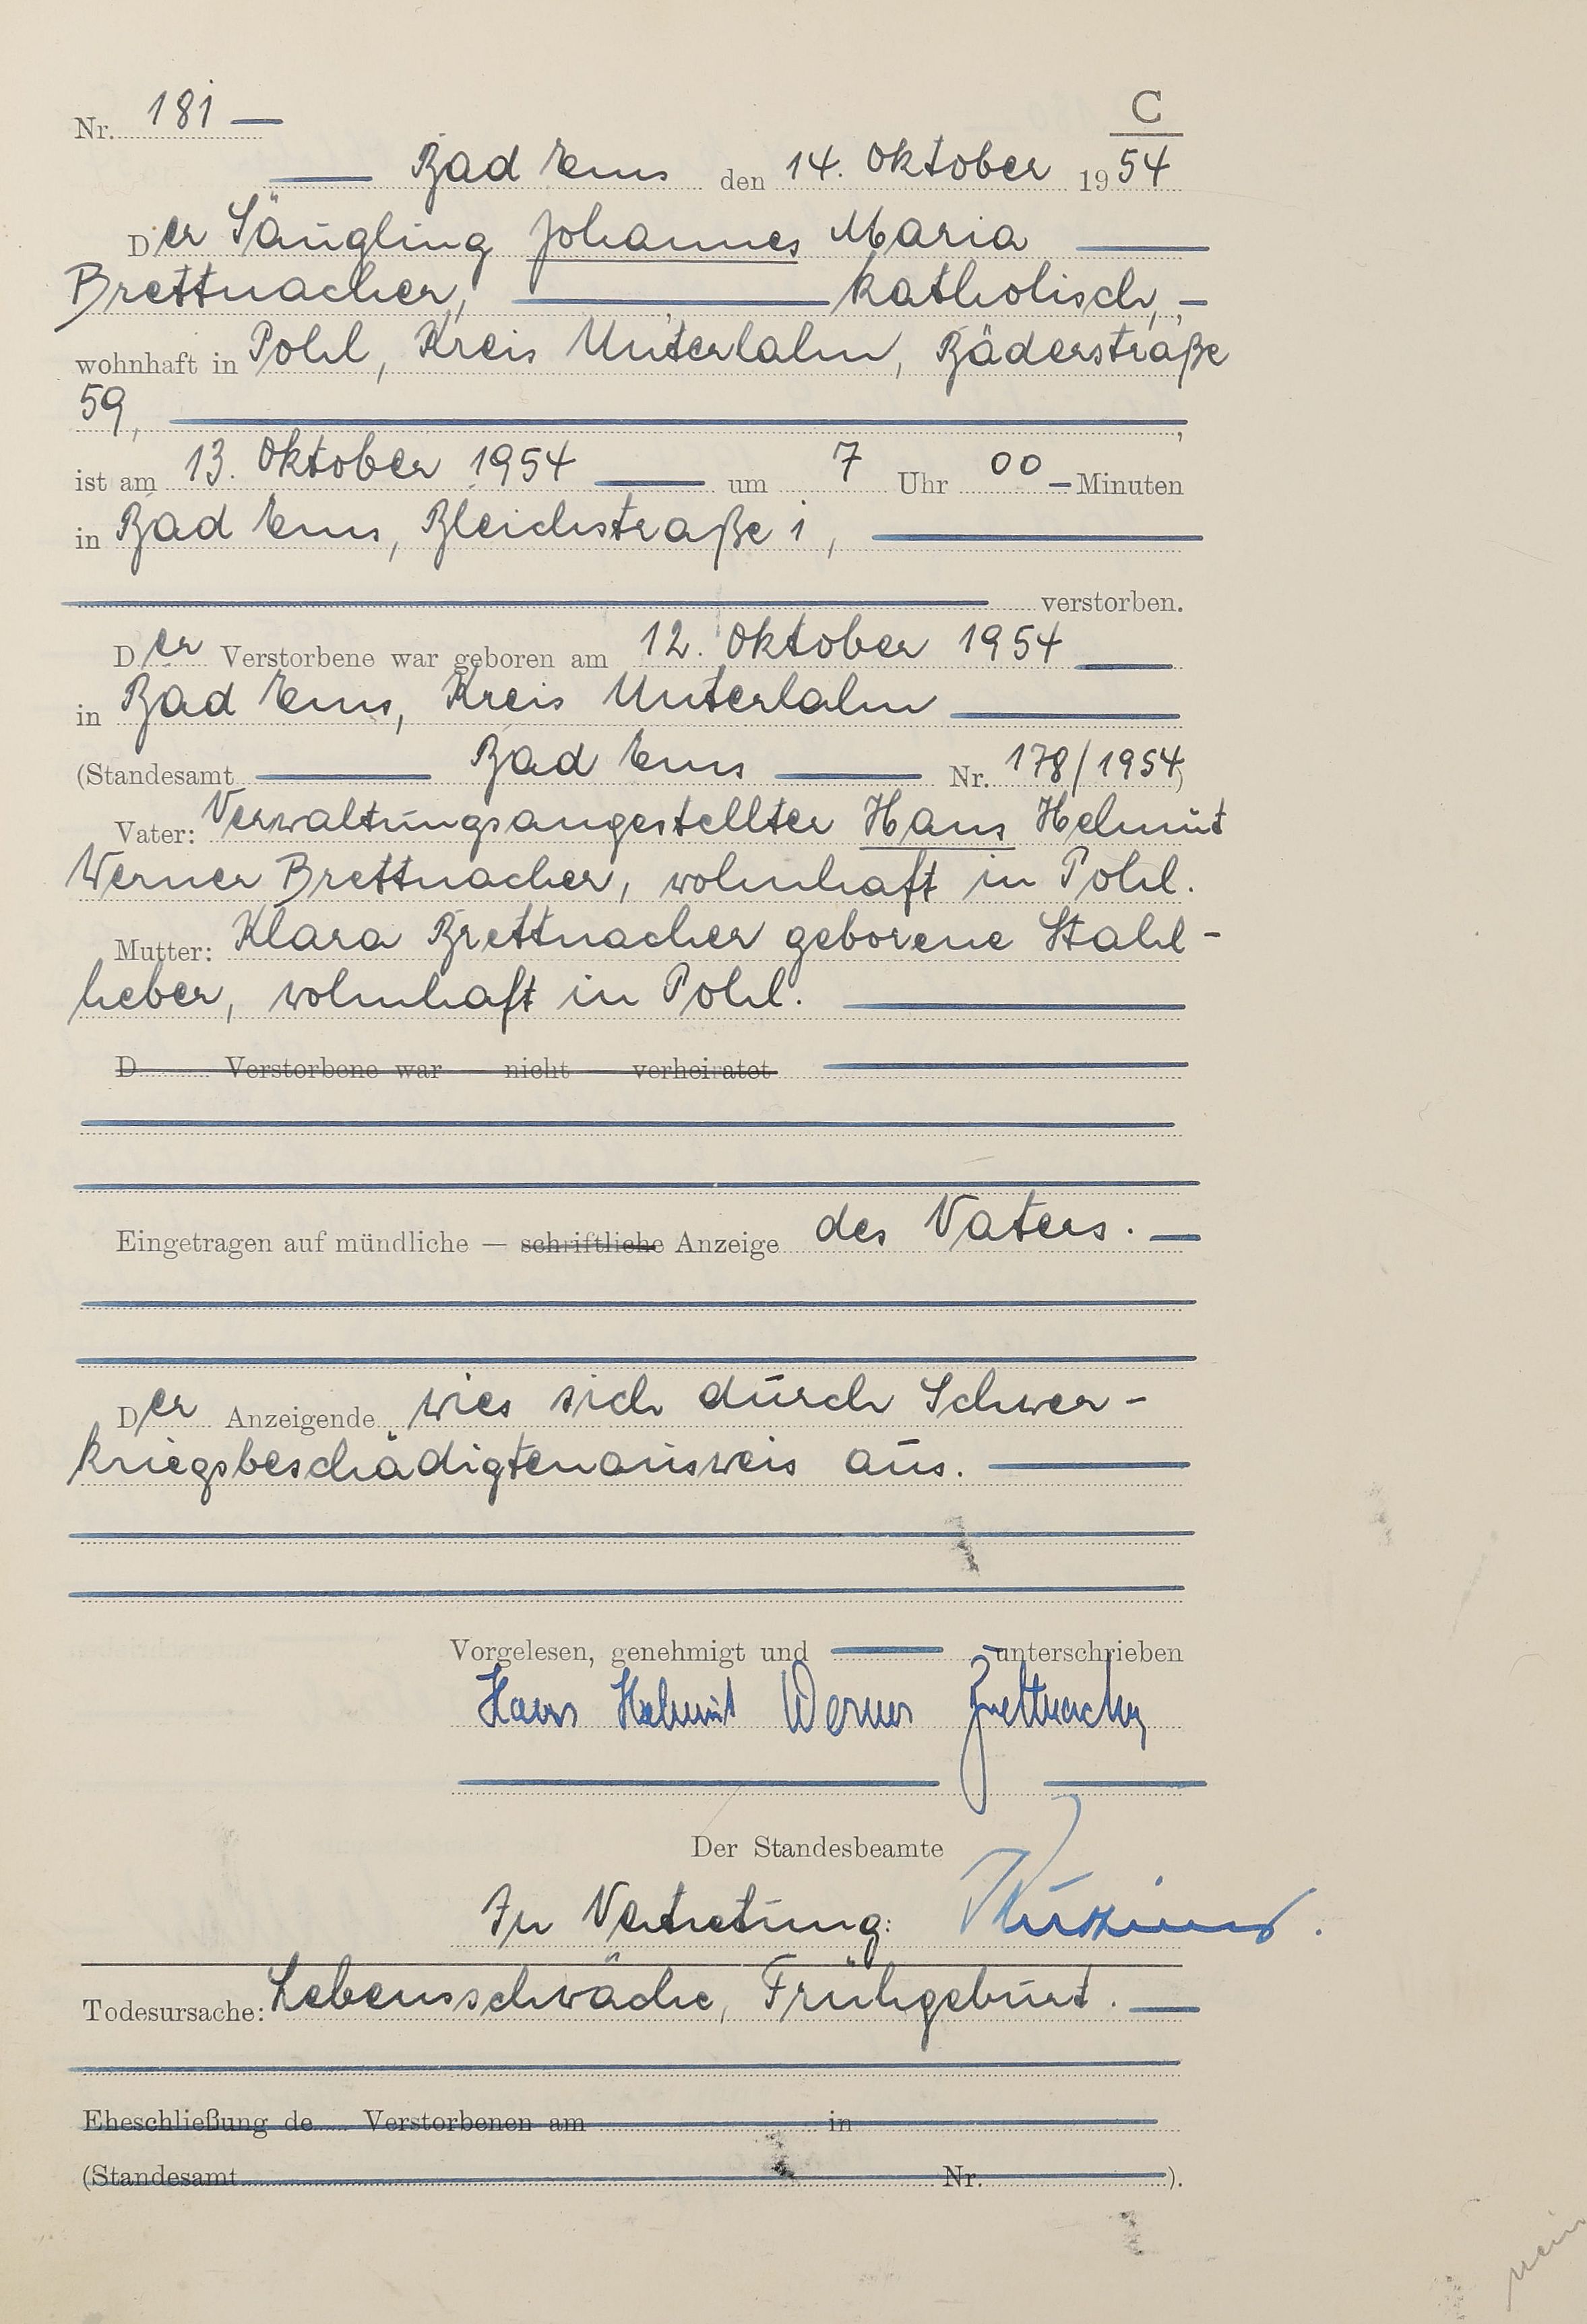 C
Nr. 181 —
Bad Ems den 14. Oktober 1954
Der Säugling Johannes Maria
Brettnacher, katholisch, —
wohnhaft in Pohl, Kreis Unterlahn, Bäderstraße
59,
ist am 13. Oktober 1954 um 7 Uhr 00 — Minuten
in Bad Ems, Bleichstraße 1,
verstorben.
Der Verstorbene war geboren am 12. Oktober 1954
in Bad Ems, Kreis Unterlahn
(Standesamt Bad Ems Nr. 178/1954)
Vater: Verwaltungsangestellter Hans Helmut
Werner Brettnacher, wohnhaft in Pohl.
Mutter: Klara Brettnacher geborene Stahl-
heber, wohnhaft in Pohl.
D Verstorbene war nicht verheiratet
Eingetragen auf mündliche — schriftliche Anzeige des Vaters. —
Der Anzeigende wies sich durch Schwer-
kriegsbeschädigtenausweis aus.
Vorgelesen, genehmigt und unterschrieben
Hans Helmut Werner Brettnacher
Der Standesbeamte
In Vertretung:
Todesursache: Lebensschwäche, Frühgeburt. —
Eheschließung de Verstorbenen am in
(Standesamt Nr. ).